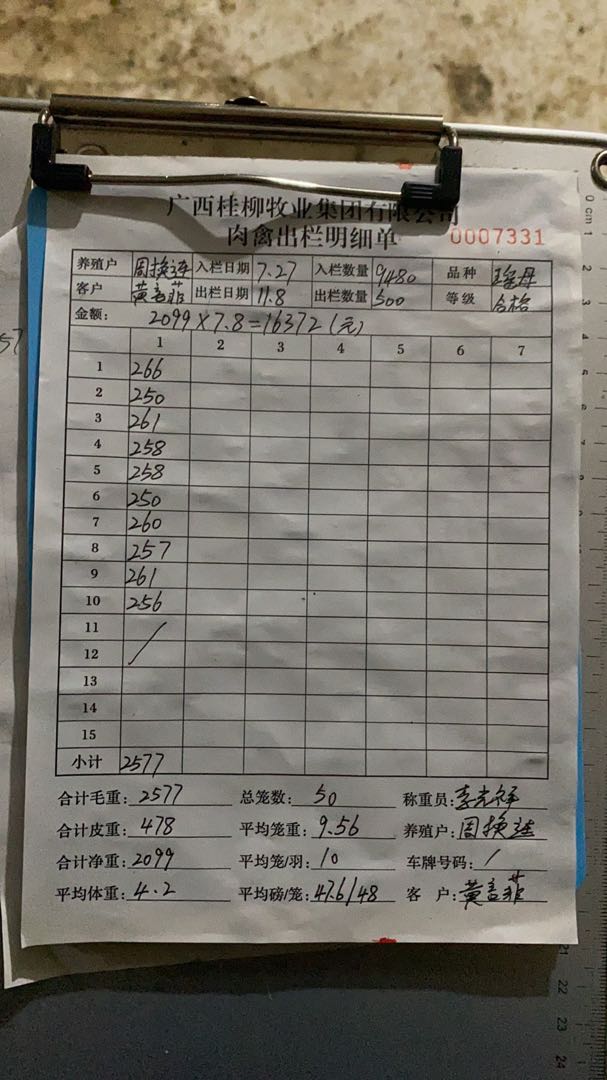 广西桂柳牧业集团有限公司
肉禽出栏明细单 0007331
养殖户 周换连 入栏日期 7.27 入栏数量 9480 品种 瑶丹
客户 出栏日期 11.8 出栏数量 500 等级 合格
金额: 2099×7.8=16372(元)
1 2 3 4 5 6 7
1 266
2 250
3 261
4 258
5 258
6 250
7 260
8 257
9 261
10 256
11
12
13
14
15
小计 2577
合计毛重: 2577 总笼数: 50 称重员:
合计皮重: 478 平均笼重: 9.56 养殖户: 周换连
合计净重: 2099 平均笼/羽: 10 车牌号码: /
平均体重: 4.2 平均磅/笼: 47.6/48 客 户:
0 cm 1
2
3
4
5
21
22
23
24